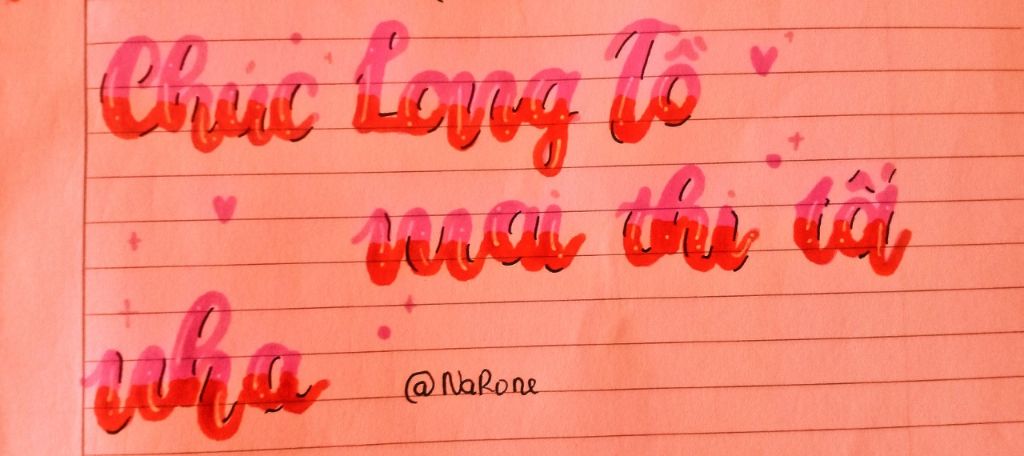 Chúc Long Tồ
mai thi tốt
nha
@NaRone